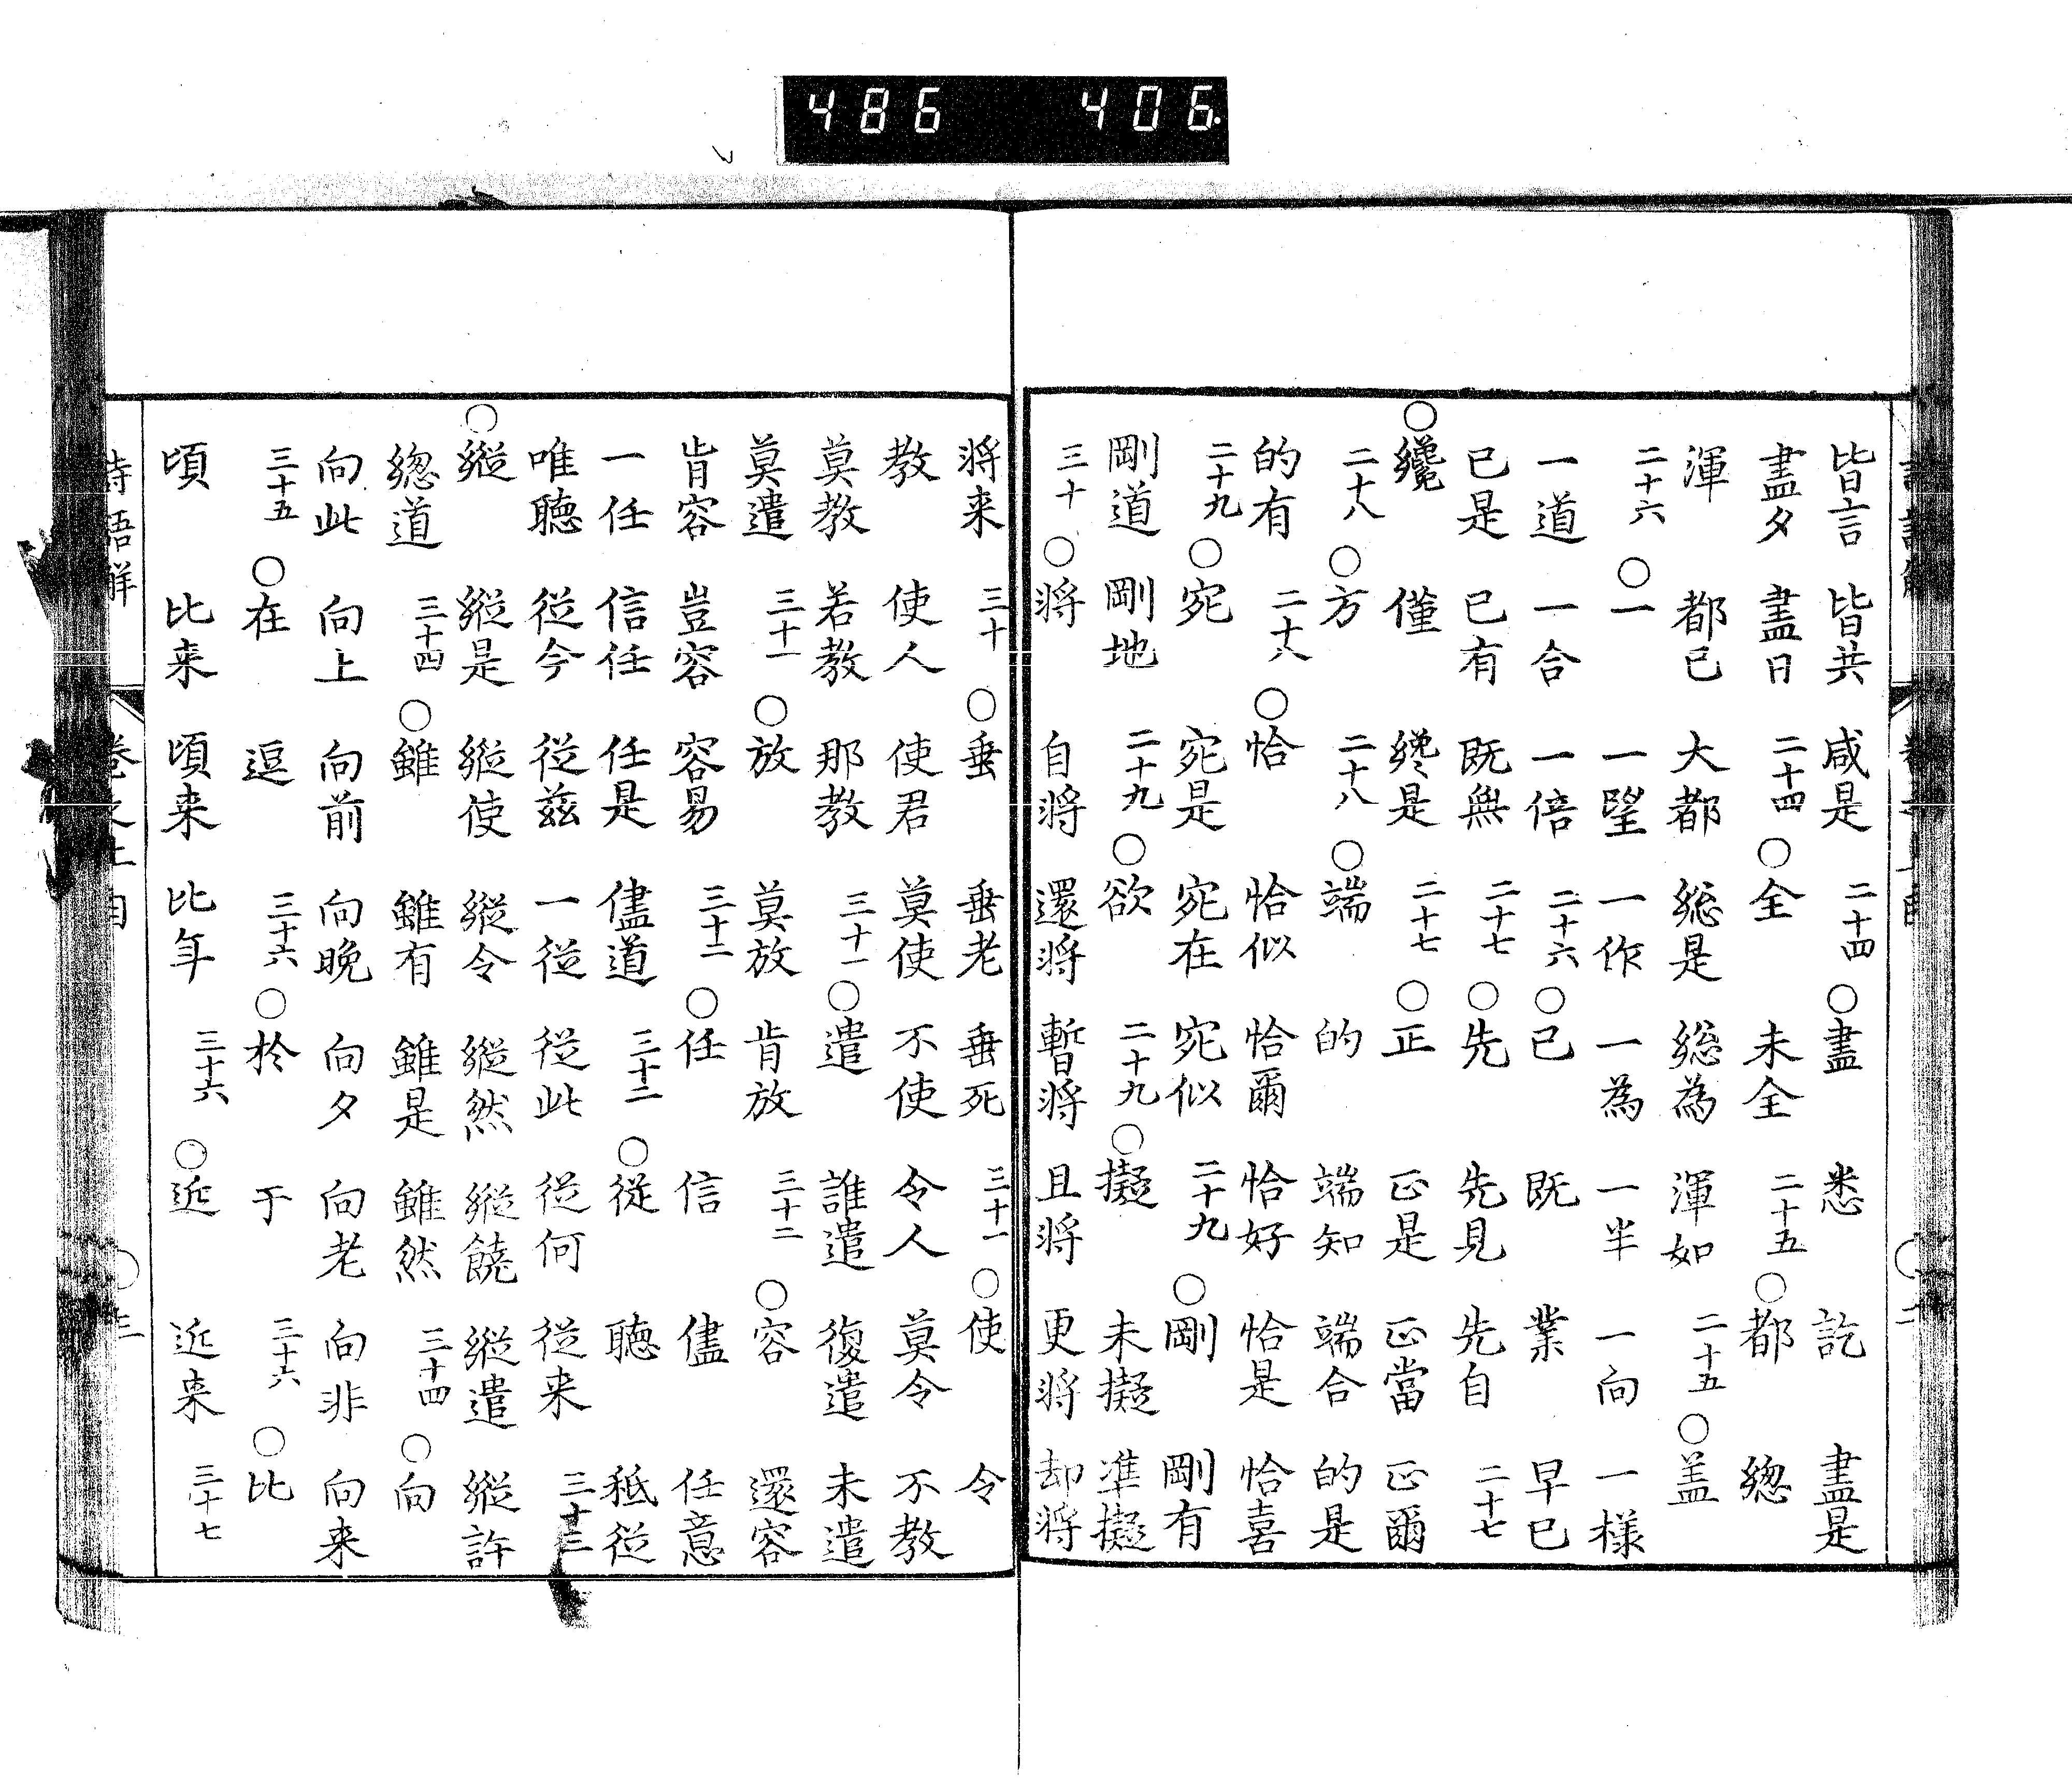 486 406.
皆言 皆共 咸是 二十四 ○盡 悉 訖 盡是
盡夕 盡日 二十四 ○全 未全 二十五 ○都 緫
渾 都已 大都 緫是 緫為 渾如 二十五 ○盖
二十六 ○一 一望 一作 一為 一半 一向 一様
一道 一合 一倍 二十六 ○已 既 業 早已
已是 已有 既無 二十七 ○先 先見 先自 二十七
○纔 僅 纔是 二十七 ○正 正是 正當 正爾
二十八 ○方 二十八 ○端 的 端知 端合 的是
的有 二十八 ○恰 恰似 恰爾 恰好 恰是 恰喜
二十九 ○宛 宛是 宛在 宛似 二十九 ○剛 剛有
剛道 剛地 二十九 ○欲 二十九 ○擬 未擬 準擬
三十 ○將 自將 還將 暫將 且將 更將 却將
將来 三十 ○垂 垂老 垂死 三十一 ○使 令
教 使人 使君 莫使 不使 令人 莫令 不教
莫教 若教 那教 三十一 ○遣 誰遣 復遣 未遣
莫遣 三十一 ○放 莫放 肯放 三十二 ○容 還容
肯容 豈容 容易 三十二 ○任 信 儘 任意
一任 信任 任是 儘道 三十二 ○從 聽 秪從
唯聽 從今 從兹 一從 從此 從何 從来 三十三
○縱 縱是 縱使 縱令 縱然 縱饒 縱遣 縱許
緫道 三十四 ○雖 雖有 雖是 雖然 三十四 ○向
向此 向上 向前 向晚 向夕 向老 向非 向来
三十五 ○在 逗 三十六 ○於 于 三十六 ○比
頃 比来 頃来 比年 三十六 ○近 近来 三十七
詩語解 卷之上目 ○三